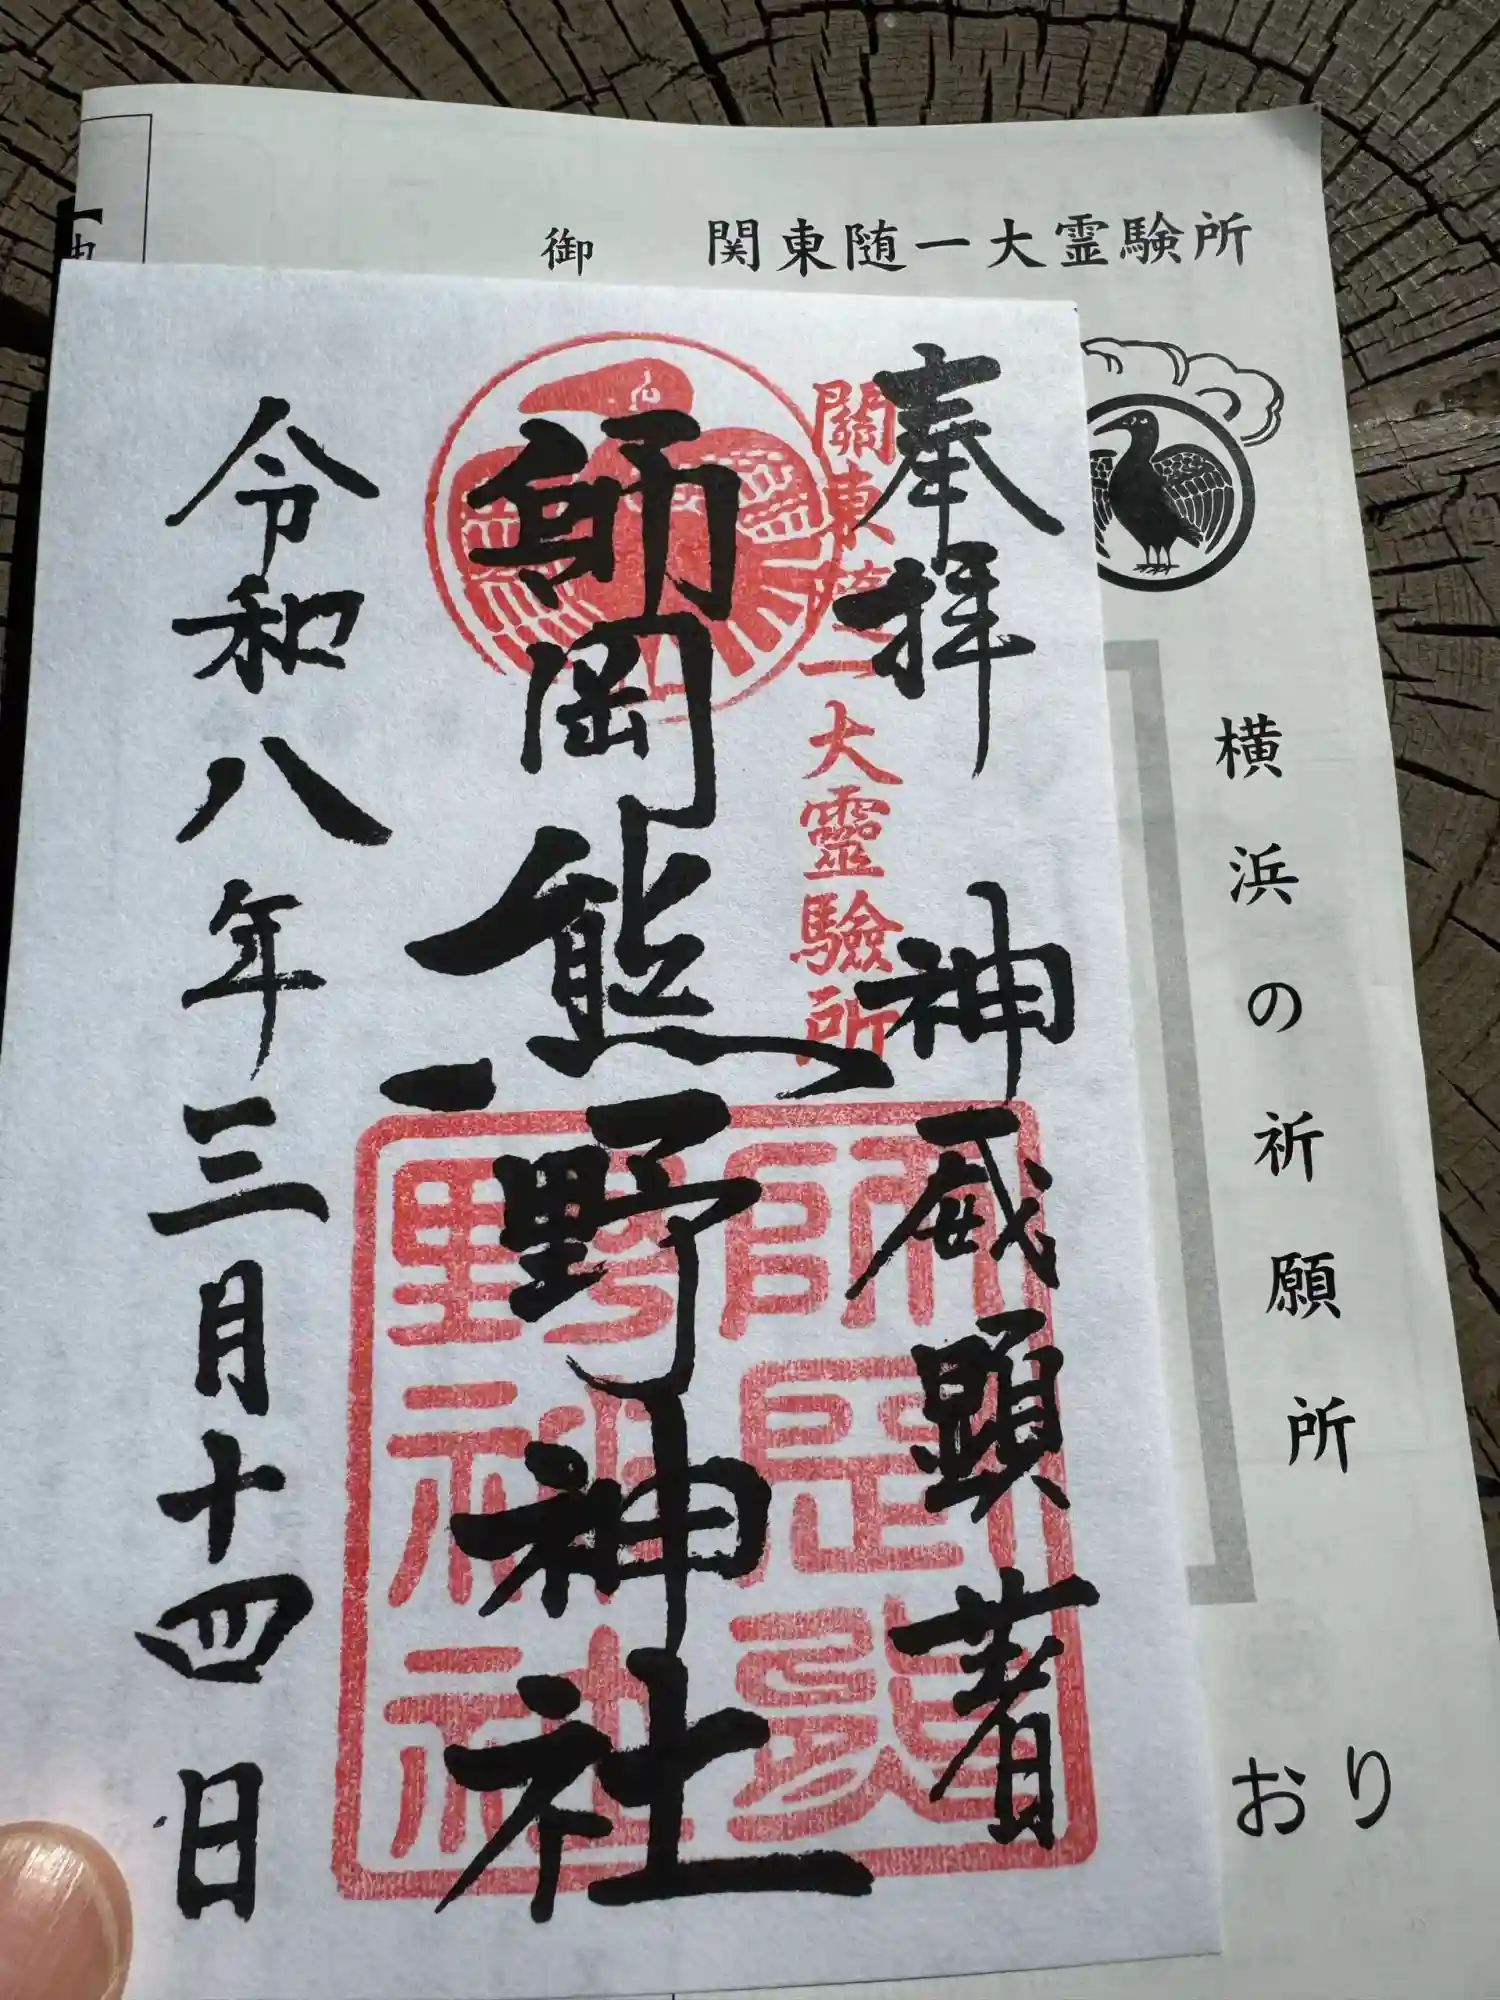 関東随一大霊験所
御
横浜の祈願所
おり
奉拝 神威顕著
關東随一大靈驗所
師岡熊野神社
師岡熊
野神社
令和八年三月十四日